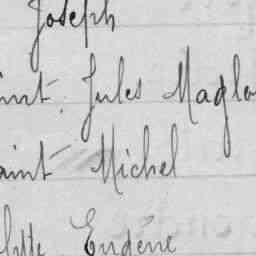 Joseph
int. Jules Maglo
aint Michel
Eugène